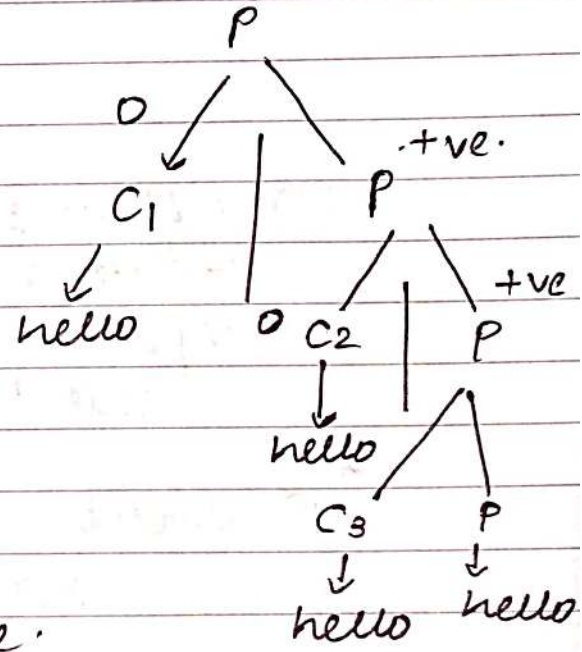 P
0
.+ve.
C1 P
+ve
hello 0 C2 P
hello
C3 P
hello hello
e.